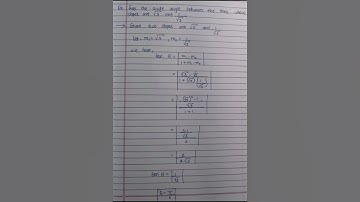 Ex. Find the acute angle between the lines whose
slopes are √3 and 1/√3
→ Given two slopes are √3 and 1/√3
Let, m₁ = √3, m₂ = 1/√3
we have,
tan θ = | m₁ - m₂ / 1 + m₁ · m₂ |
= | √3 - 1/√3 / 1 + (√3)(1/√3) |
= | (√3)² - 1 / √3 / 1 + 1 |
= | 3-1 / √3 / 2 |
= | 2 / 2√3 |
tan θ = | 1/√3 |
θ = π/6